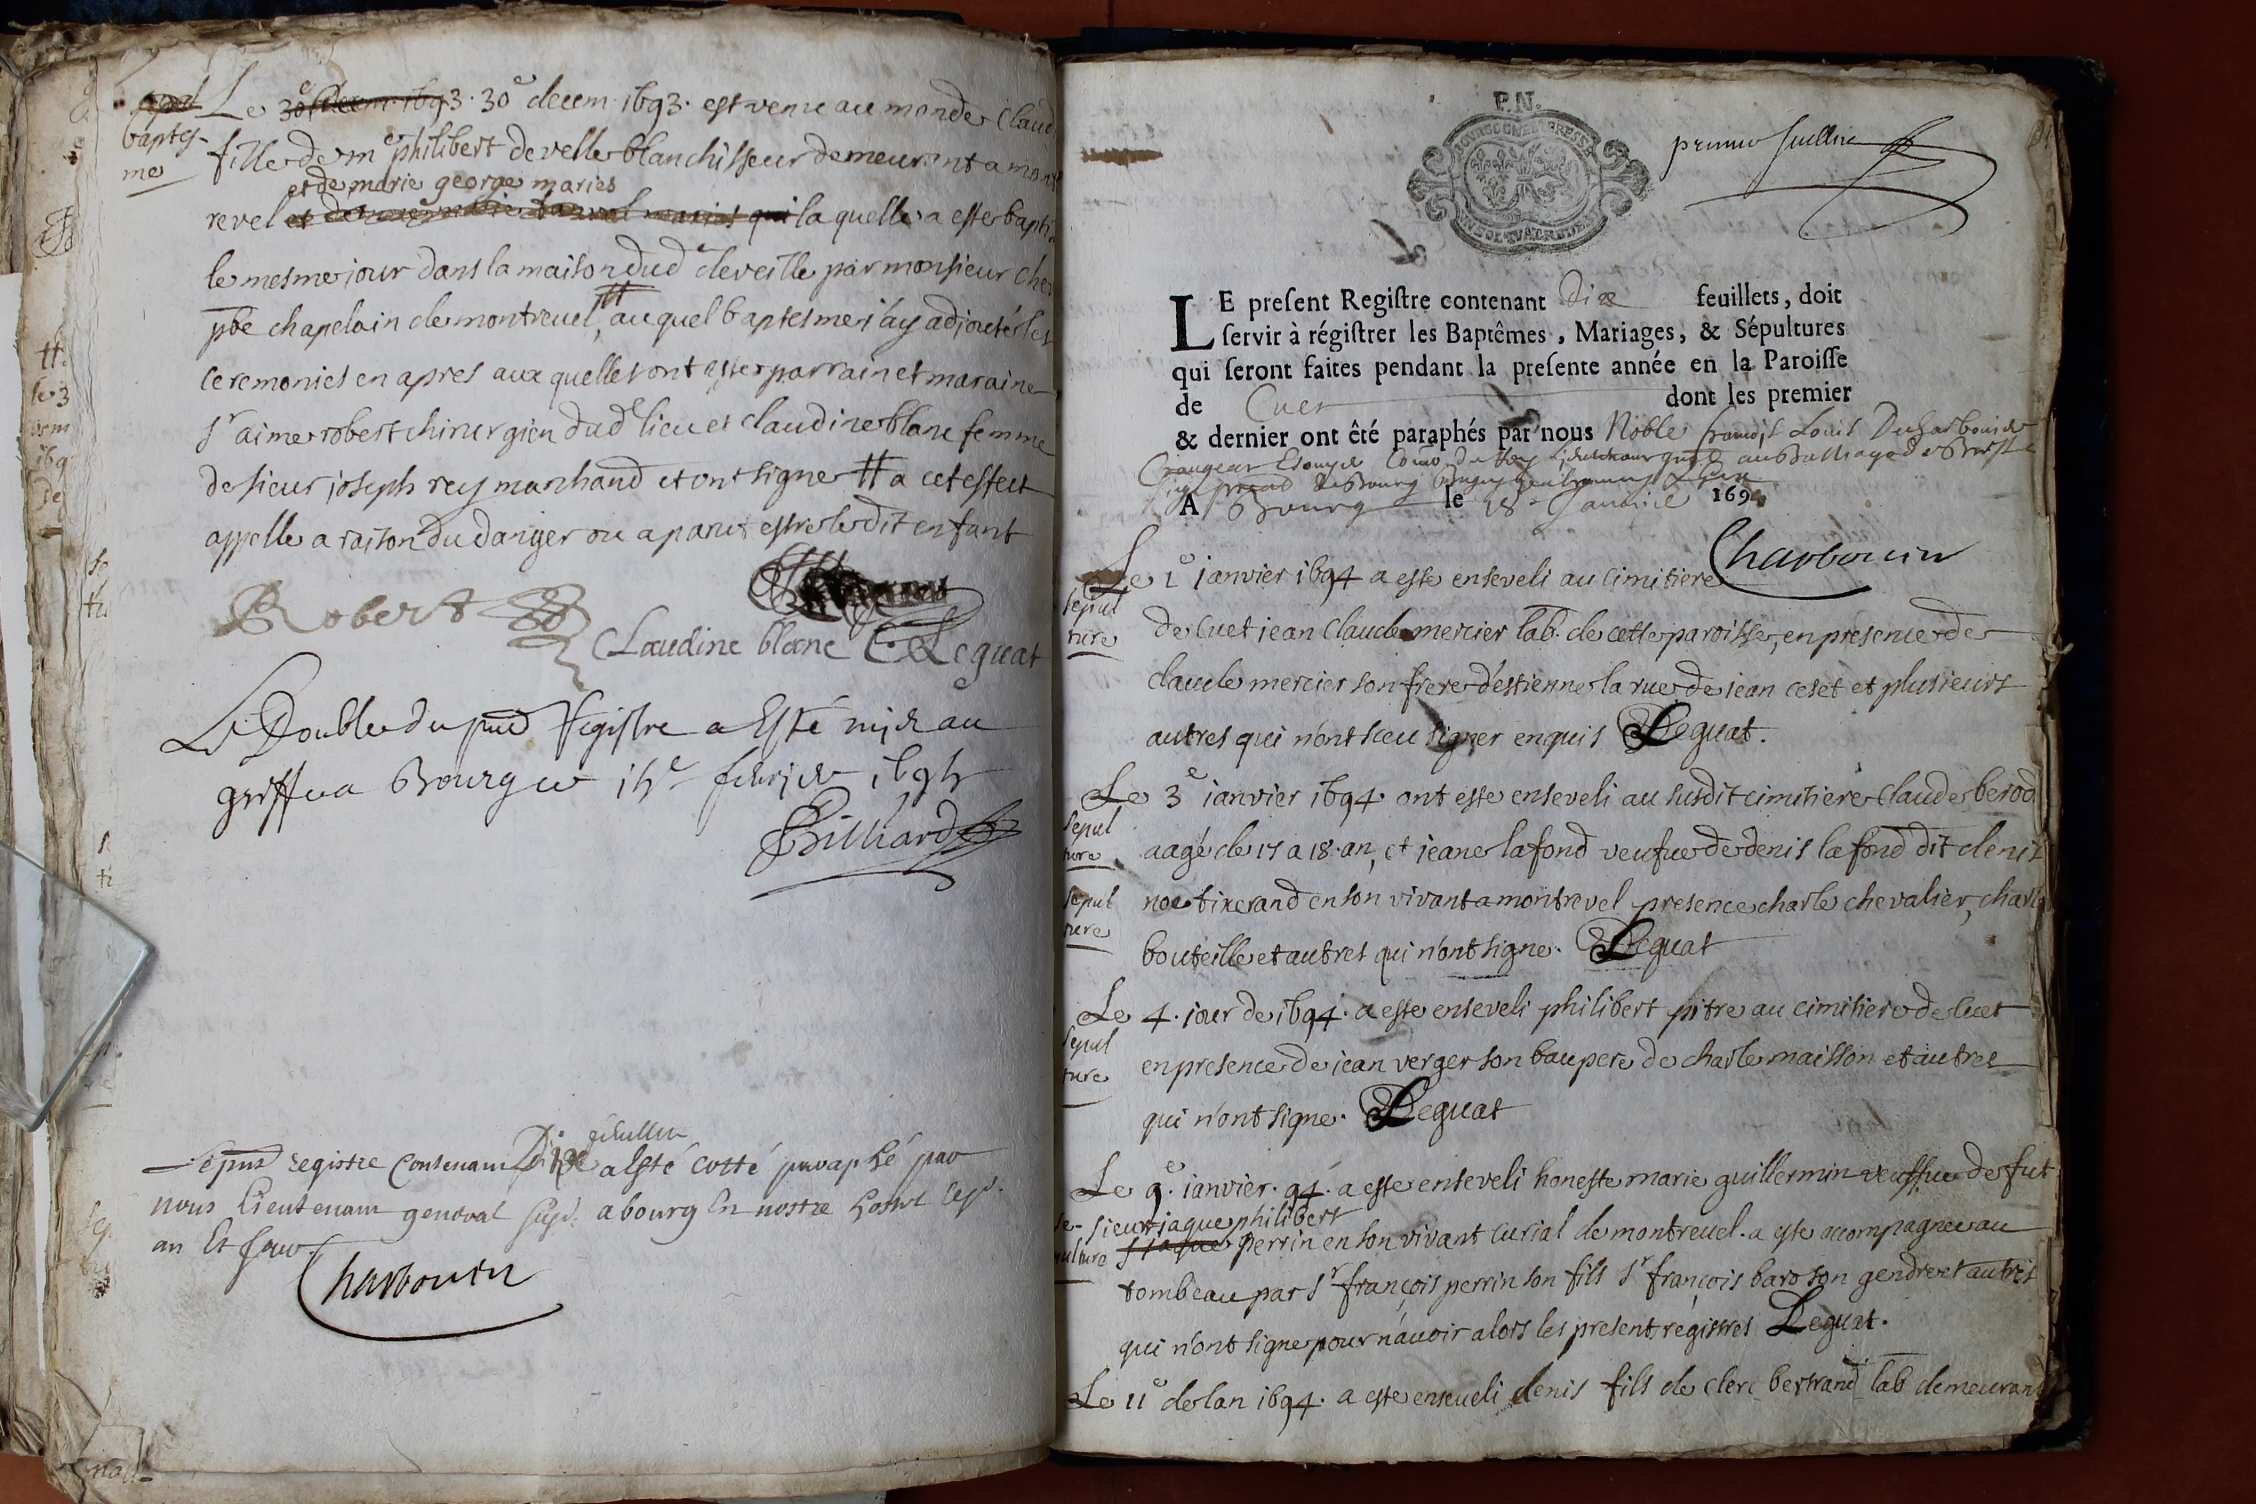 baptes-
me
Le 30e decem 1693. 30e decem. 1693. est venue au monde Claud
fille de me philibert develle blanchisseur demeurant a mont
et de marie george maries
revel la quelle a este bapti
le mesme jour dans la maison dud develle par monsieur
pbre chapelain de montrevel, tt au quel baptesme j'ay adjouté les
ceremonies en apres aux quelles ont este parrain et maraine
sr aime robert chirurgien dud lieu et claudine blanc femme
de sieur joseph rey marchand et ont signe tt a cet effect
appelle a raison du danger ou a parut estre ledit enfant
Robert
Claudine blanc Leguat
Le Double du pnt Registre a Esté mis au
greffe a Bourg ce
Billiard
feuillets
Le pnt registre Contenant Dix a Esté cotté paraphé par
nous Lieutenant general a bourg En nostre hostel
an Et jour
Charbonier
P.N.
premier feuillet
LE present Registre contenant Dix feuillets, doit
servir à régistrer les Baptêmes, Mariages, & Sépultures
qui seront faites pendant la presente année en la Paroisse
de Cuet dont les premier
& dernier ont êté paraphés par nous Noble françois Louis Ducharbonier
Crangeac Escuyer au Balliage de Bresse
A Bourg le 18e Janvier 1694
Charbonier
Le 1e janvier 1694 a este enseveli au cimitiere
sepul
ture
de Cuet jean Claude mercier lab. de cette paroisse, en presence de
claude mercier son frere d'estienne la rue de jean ceset et plusieurs
autres qui n'ont sceu signer enquis Leguat.
Le 3e janvier 1694. ont este enseveli au susdit cimitiere Claude berod
sepul
ture
aagé de 17 a 18. an, et jeane lafond veufve de denis lafond dit denis
sepul
ture
noe tixerand en son vivant a montrevel presence charle chevalier, charle
bouteille et autres qui n'ont signe. Leguat
Le 4. jour de 1694. a este enseveli philibert pitre au cimitiere de Cuet
sepul
ture
en presence de jean verger son baupere de charle maisson et autres
qui n'ont signe. Leguat
Le 9e. janvier. 94. a este enseveli honeste marie guillermin veuffve de fut
se-
pulture
sieur jaque philibert
perrin en son vivant curial de montrevel. a este accompagnee au
tombeau par sr françois perrin son fils sr françois baro son gendre et autres
qui n'ont signe pour n'avoir alors les present registres Leguat.
Le 11e de lan 1694. a este enseveli denis fils de clere bertrand lab demeurant